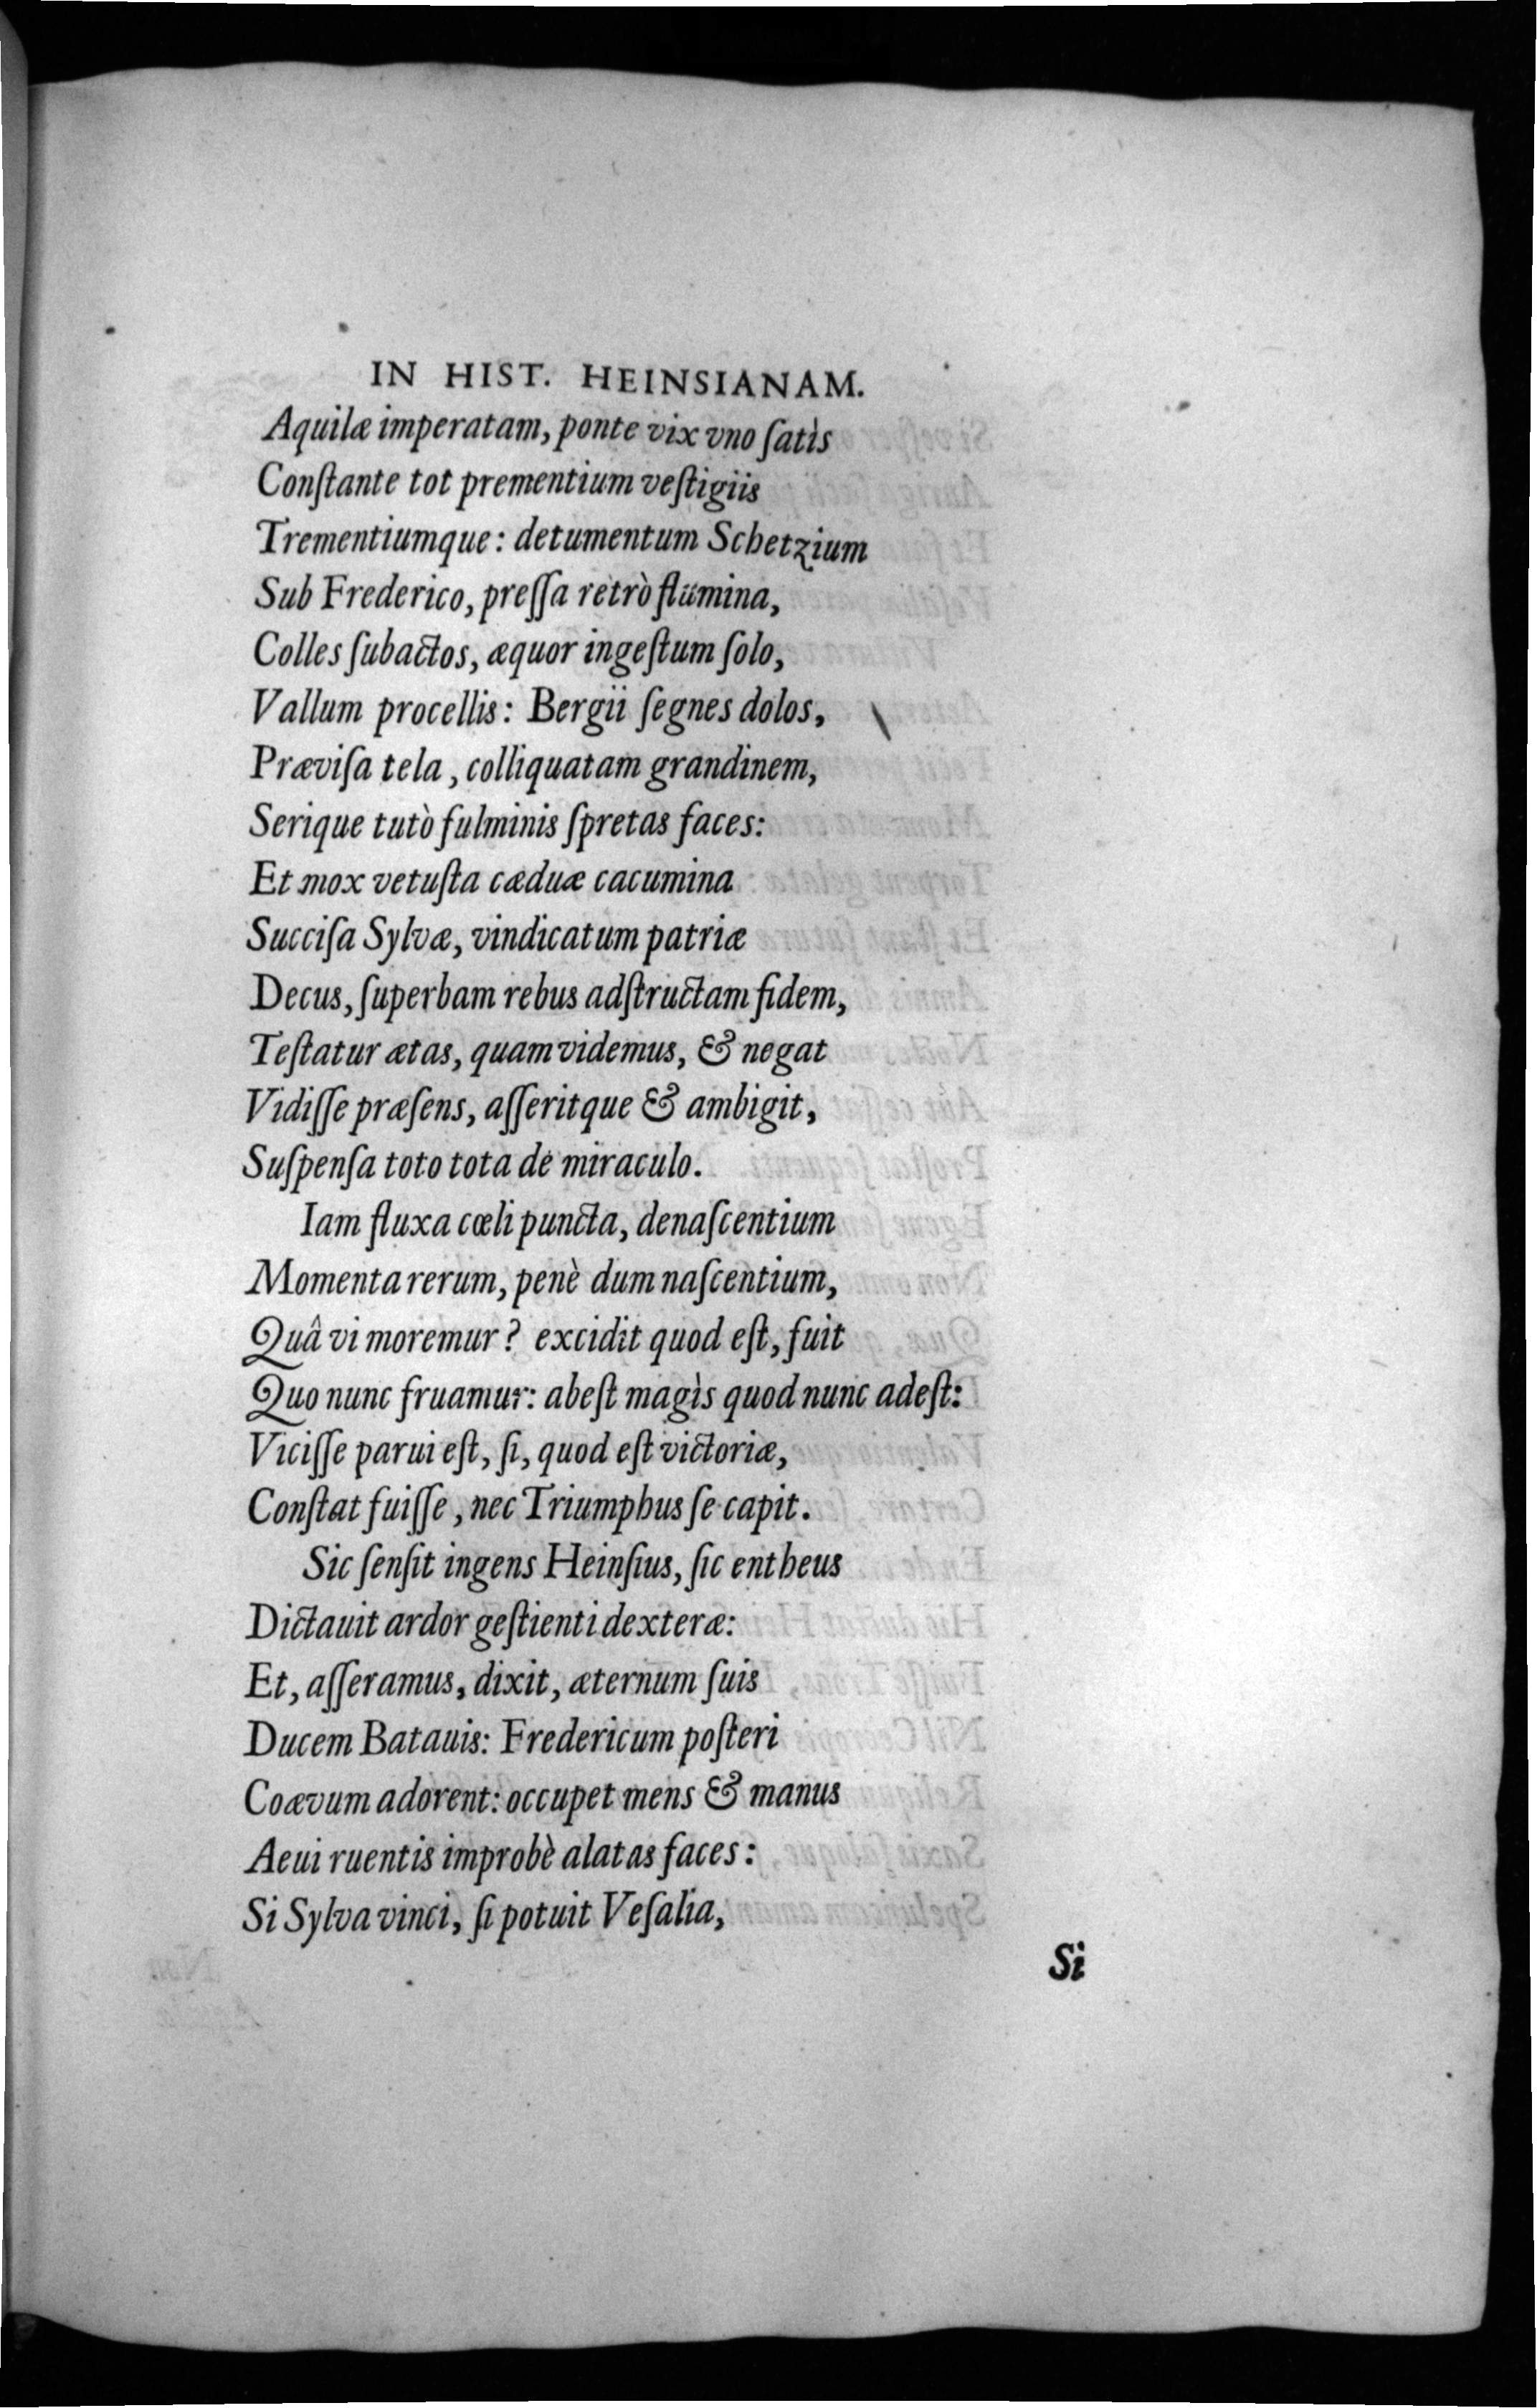 IN HIST. HEINSIANAM.
Aquilæ imperatam, ponte vix vno ſatìs
Conſtante tot prementium veſtigiis
Trementiumque: detumentum Schetzium
Sub Frederico, preſſa retrò flumina,
Colles ſubactos, æquor ingeſtum ſolo,
Vallum procellis: Bergii ſegnes dolos,
Præviſa tela, colliquatam grandinem,
Serique tutò fulminis ſpretas faces:
Et mox vetuſta cæduæ cacumina
Succiſa Sylvæ, vindicatum patriæ
Decus, ſuperbam rebus adſtructam fidem,
Teſtatur ætas, quam videmus, & negat
Vidiſſe præſens, aſſeritque & ambigit,
Suſpenſa toto tota de miraculo.
Iam fluxa cœli puncta, denaſcentium
Momenta rerum, penè dum naſcentium,
Quâ vi moremur? excidit quod eſt, fuit
Quo nunc fruamur: abeſt magìs quod nunc adeſt:
Viciſſe parui eſt, ſi, quod eſt victoriæ,
Conſtat fuiſſe, nec Triumphus ſe capit.
Sic ſenſit ingens Heinſius, ſic entheus
Dictauit ardor geſtienti dexteræ:
Et, aſſeramus, dixit, æternum ſuis
Ducem Batauis: Fredericum poſteri
Coævum adorent: occupet mens & manus
Aeui ruentis improbè alatas faces:
Si Sylva vinci, ſi potuit Veſalia,
Si